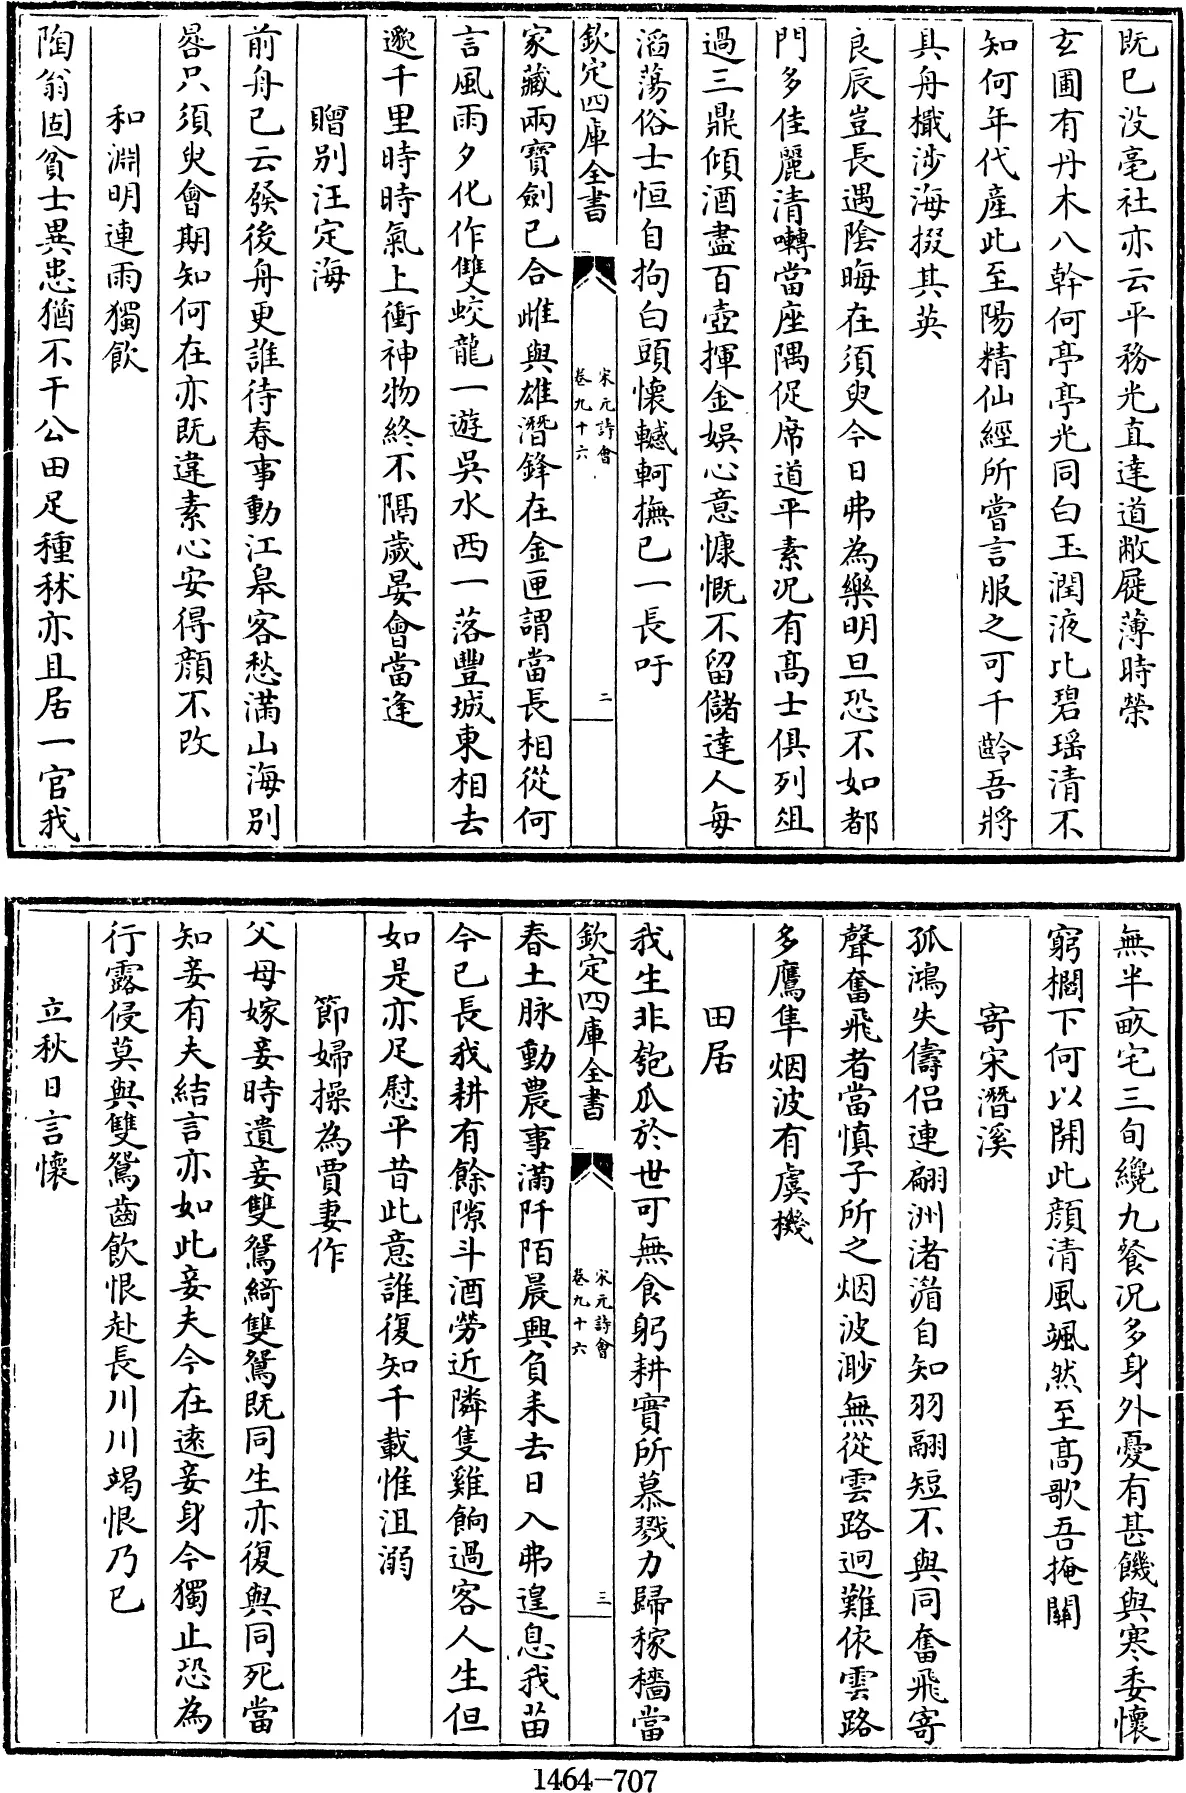 既已没亳社亦云平務光直達道敝屣薄時榮
玄圃有丹木八幹何亭亭光同白玉潤液比碧瑶清不
知何年代産此至陽精仙經所嘗言服之可千齡吾將
具舟檝涉海掇其英
良辰豈長遇陰晦在須臾今日弗為樂明旦恐不如都
門多佳麗清囀當座隅促席道平素况有髙士俱列俎
過三鼎傾酒盡百壺揮金娱心意慷慨不留儲達人每
滔蕩俗士恒自拘白頭懷轗軻撫已一長吁
欽定四庫全書
宋元詩會
卷九十六
二
家藏兩寶劍已合雌與雄潛鋒在金匣謂當長相從何
言風雨夕化作雙蛟龍一遊吳水西一落豐城東相去
邈千里時時氣上衝神物終不隔歲晏會當逢
贈别汪定海
前舟已云發後舟更誰待春事動江皋客愁滿山海别
晷只須臾會期知何在亦既違素心安得顔不改
和淵明連雨獨飲
陶翁固貧士異患猶不干公田足種秫亦且居一官我
無半畝宅三旬纔九餐况多身外憂有甚饑與寒委懷
窮櫩下何以開此顔清風颯然至髙歌吾掩關
寄宋潛溪
孤鴻失儔侣連翩洲渚㵝自知羽翮短不與同奮飛寄
聲奮飛者當慎子所之烟波渺無從雲路迥難依雲路
多鷹隼烟波有虞機
田居
我生非匏瓜於世可無食躬耕實所慕戮力歸稼穡當
欽定四庫全書
宋元詩會
卷九十六
三
春土脉動農事滿阡陌晨興負耒去日入弗遑息我苗
今已長我耕有餘隙斗酒勞近隣隻雞餉過客人生但
如是亦足慰平昔此意誰復知千載惟沮溺
節婦操為賈妻作
父母嫁妾時遺妾雙鴛綺雙鴛既同生亦復與同死當
知妾有夫結言亦如此妾夫今在逺妾身今獨止恐為
行露侵莫與雙鴛齒飲恨赴長川川竭恨乃已
立秋日言懷
1464-707